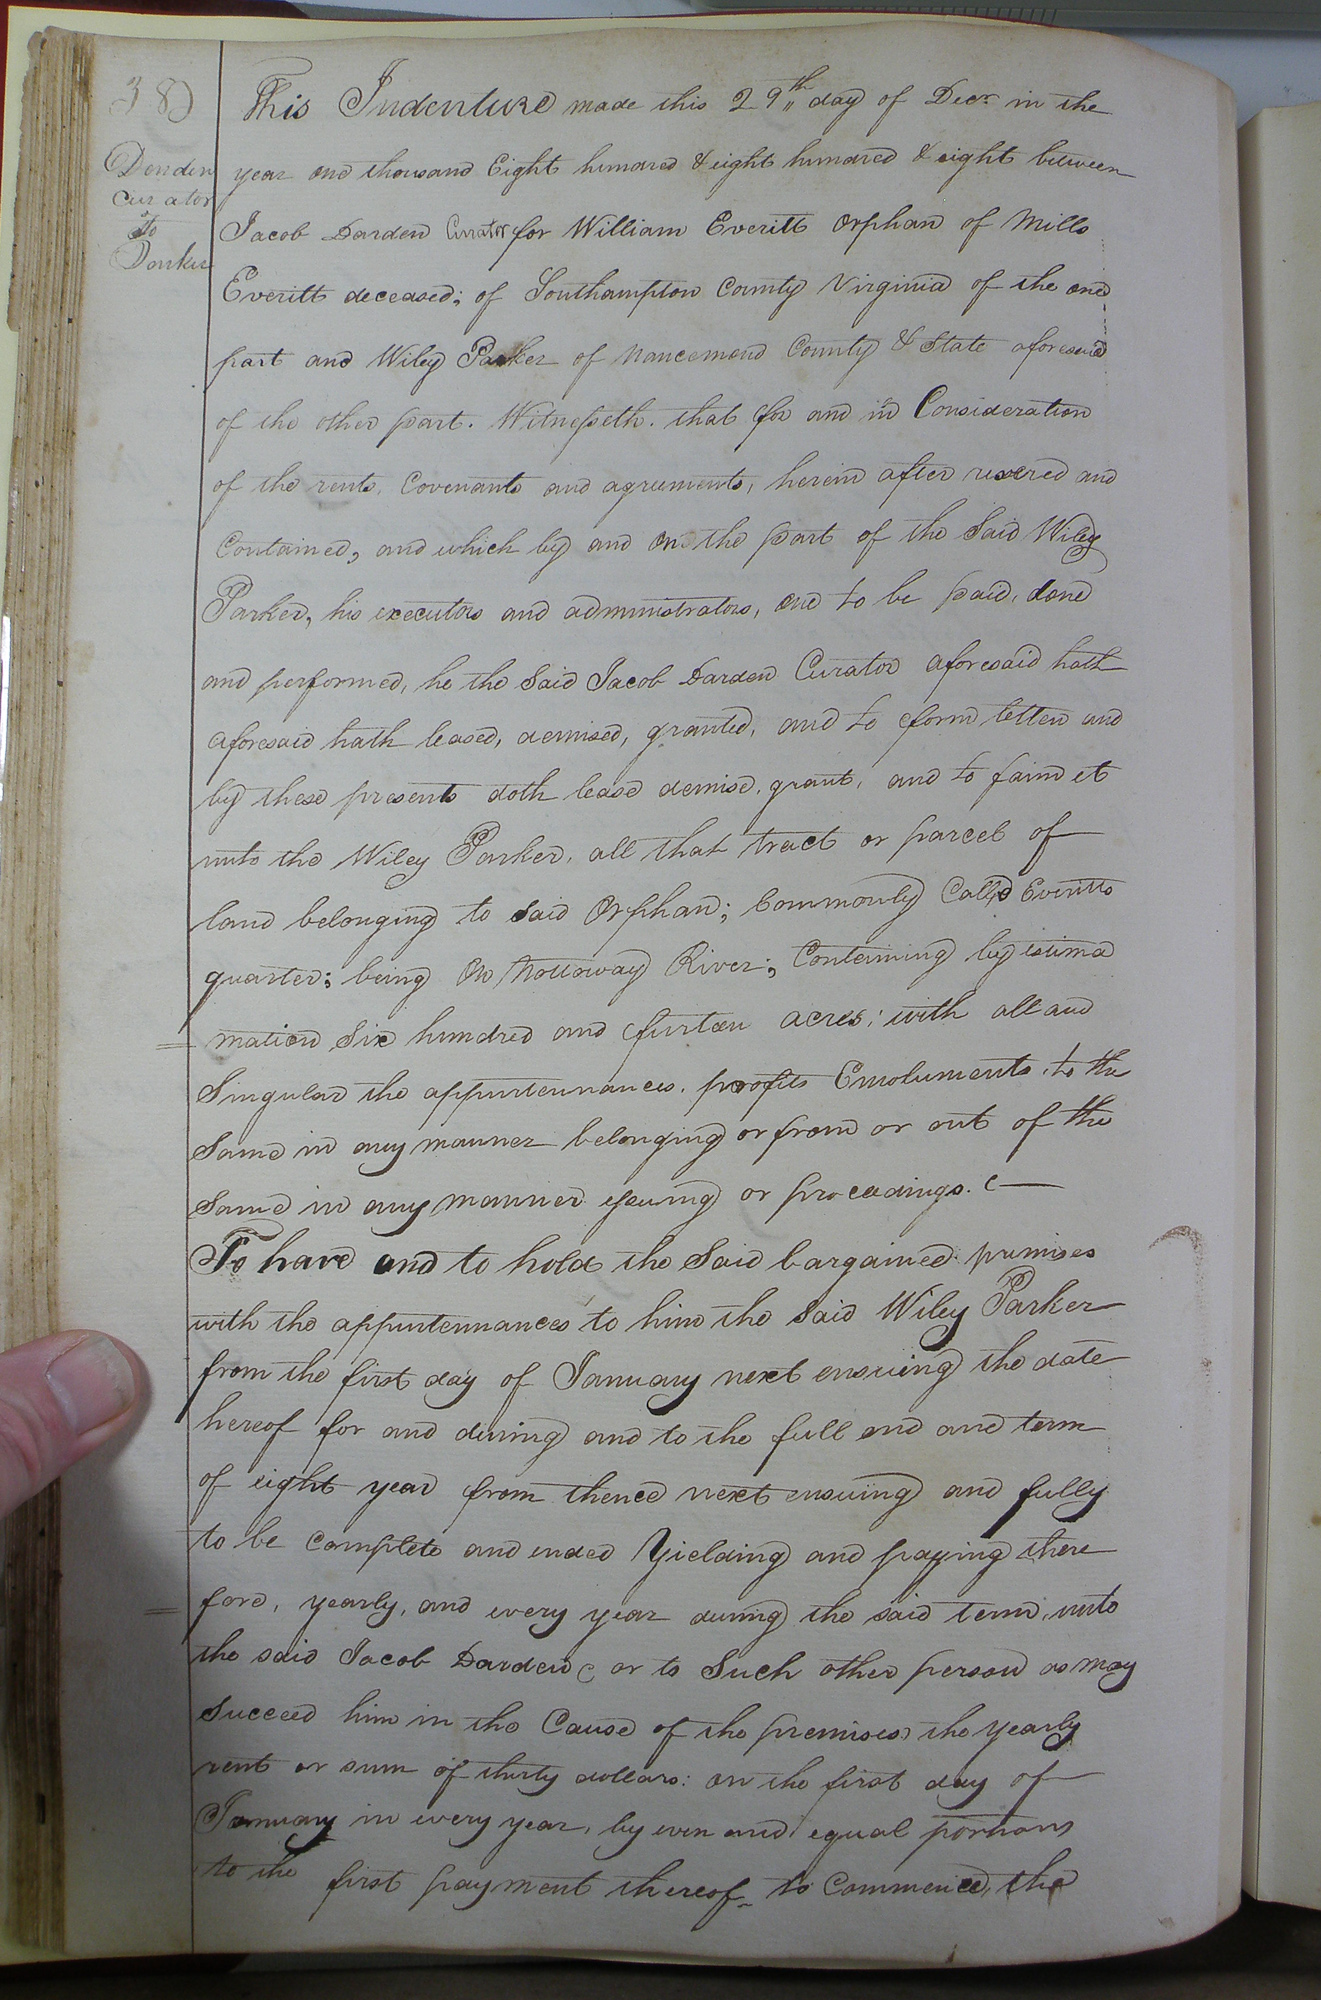 38)
Darden
Curator
To
Parker
This Indenture made this 29th day of Decr in the
year one thousand Eight hundred & eight hundred & eight between
Jacob Darden Curator for William Everitt Orphan of Mills
Everitt deceased; of Southampton County Virginia of the one
part and Wiley Parker of Nancemond County & State aforesaid
of the other part. Witnesseth. that for and in Consideration
of the rents, Covenants and agruments, herein after reserved and
Contained, and which by and on the part of the Said Wiley
Parker, his executors and administrators, are to be paid, done
and performed, he the Said Jacob Darden Curator aforesaid hath
aforesaid hath leased, demised, granted, and to form letten and
by these presents doth lease demise, grant, and to faim et
unto the Wiley Parker, all that tract or parcel of
land belonging to said Orphan; Commonly Called Everitts
quarter; being On Nottoway River; Containing by estima
mation Six hundred and furteen acres; with all and
Singular the appurtennances, profits Emoluments, to the
Same in any manner belonging or from or out of the
Same in any manner yeuing or proceedings.
To have and to hold the Said bargained premises
with the appurtennances to him the said Wiley Parker
from the first day of January next ensuing the date
hereof for and during and to the full end and term
of eight year from thence next ensuing and fully
to be Complete and ended Yielding and paying there
fore, yearly, and every year during the said term, unto
the said Jacob Darden, or to Such other person as may
succeed him in the Cause of the premises, the yearly
rent or sum of thirty dollars: on the first day of
January in every year, by even and equal portions
to the first payment thereof to Commence, the